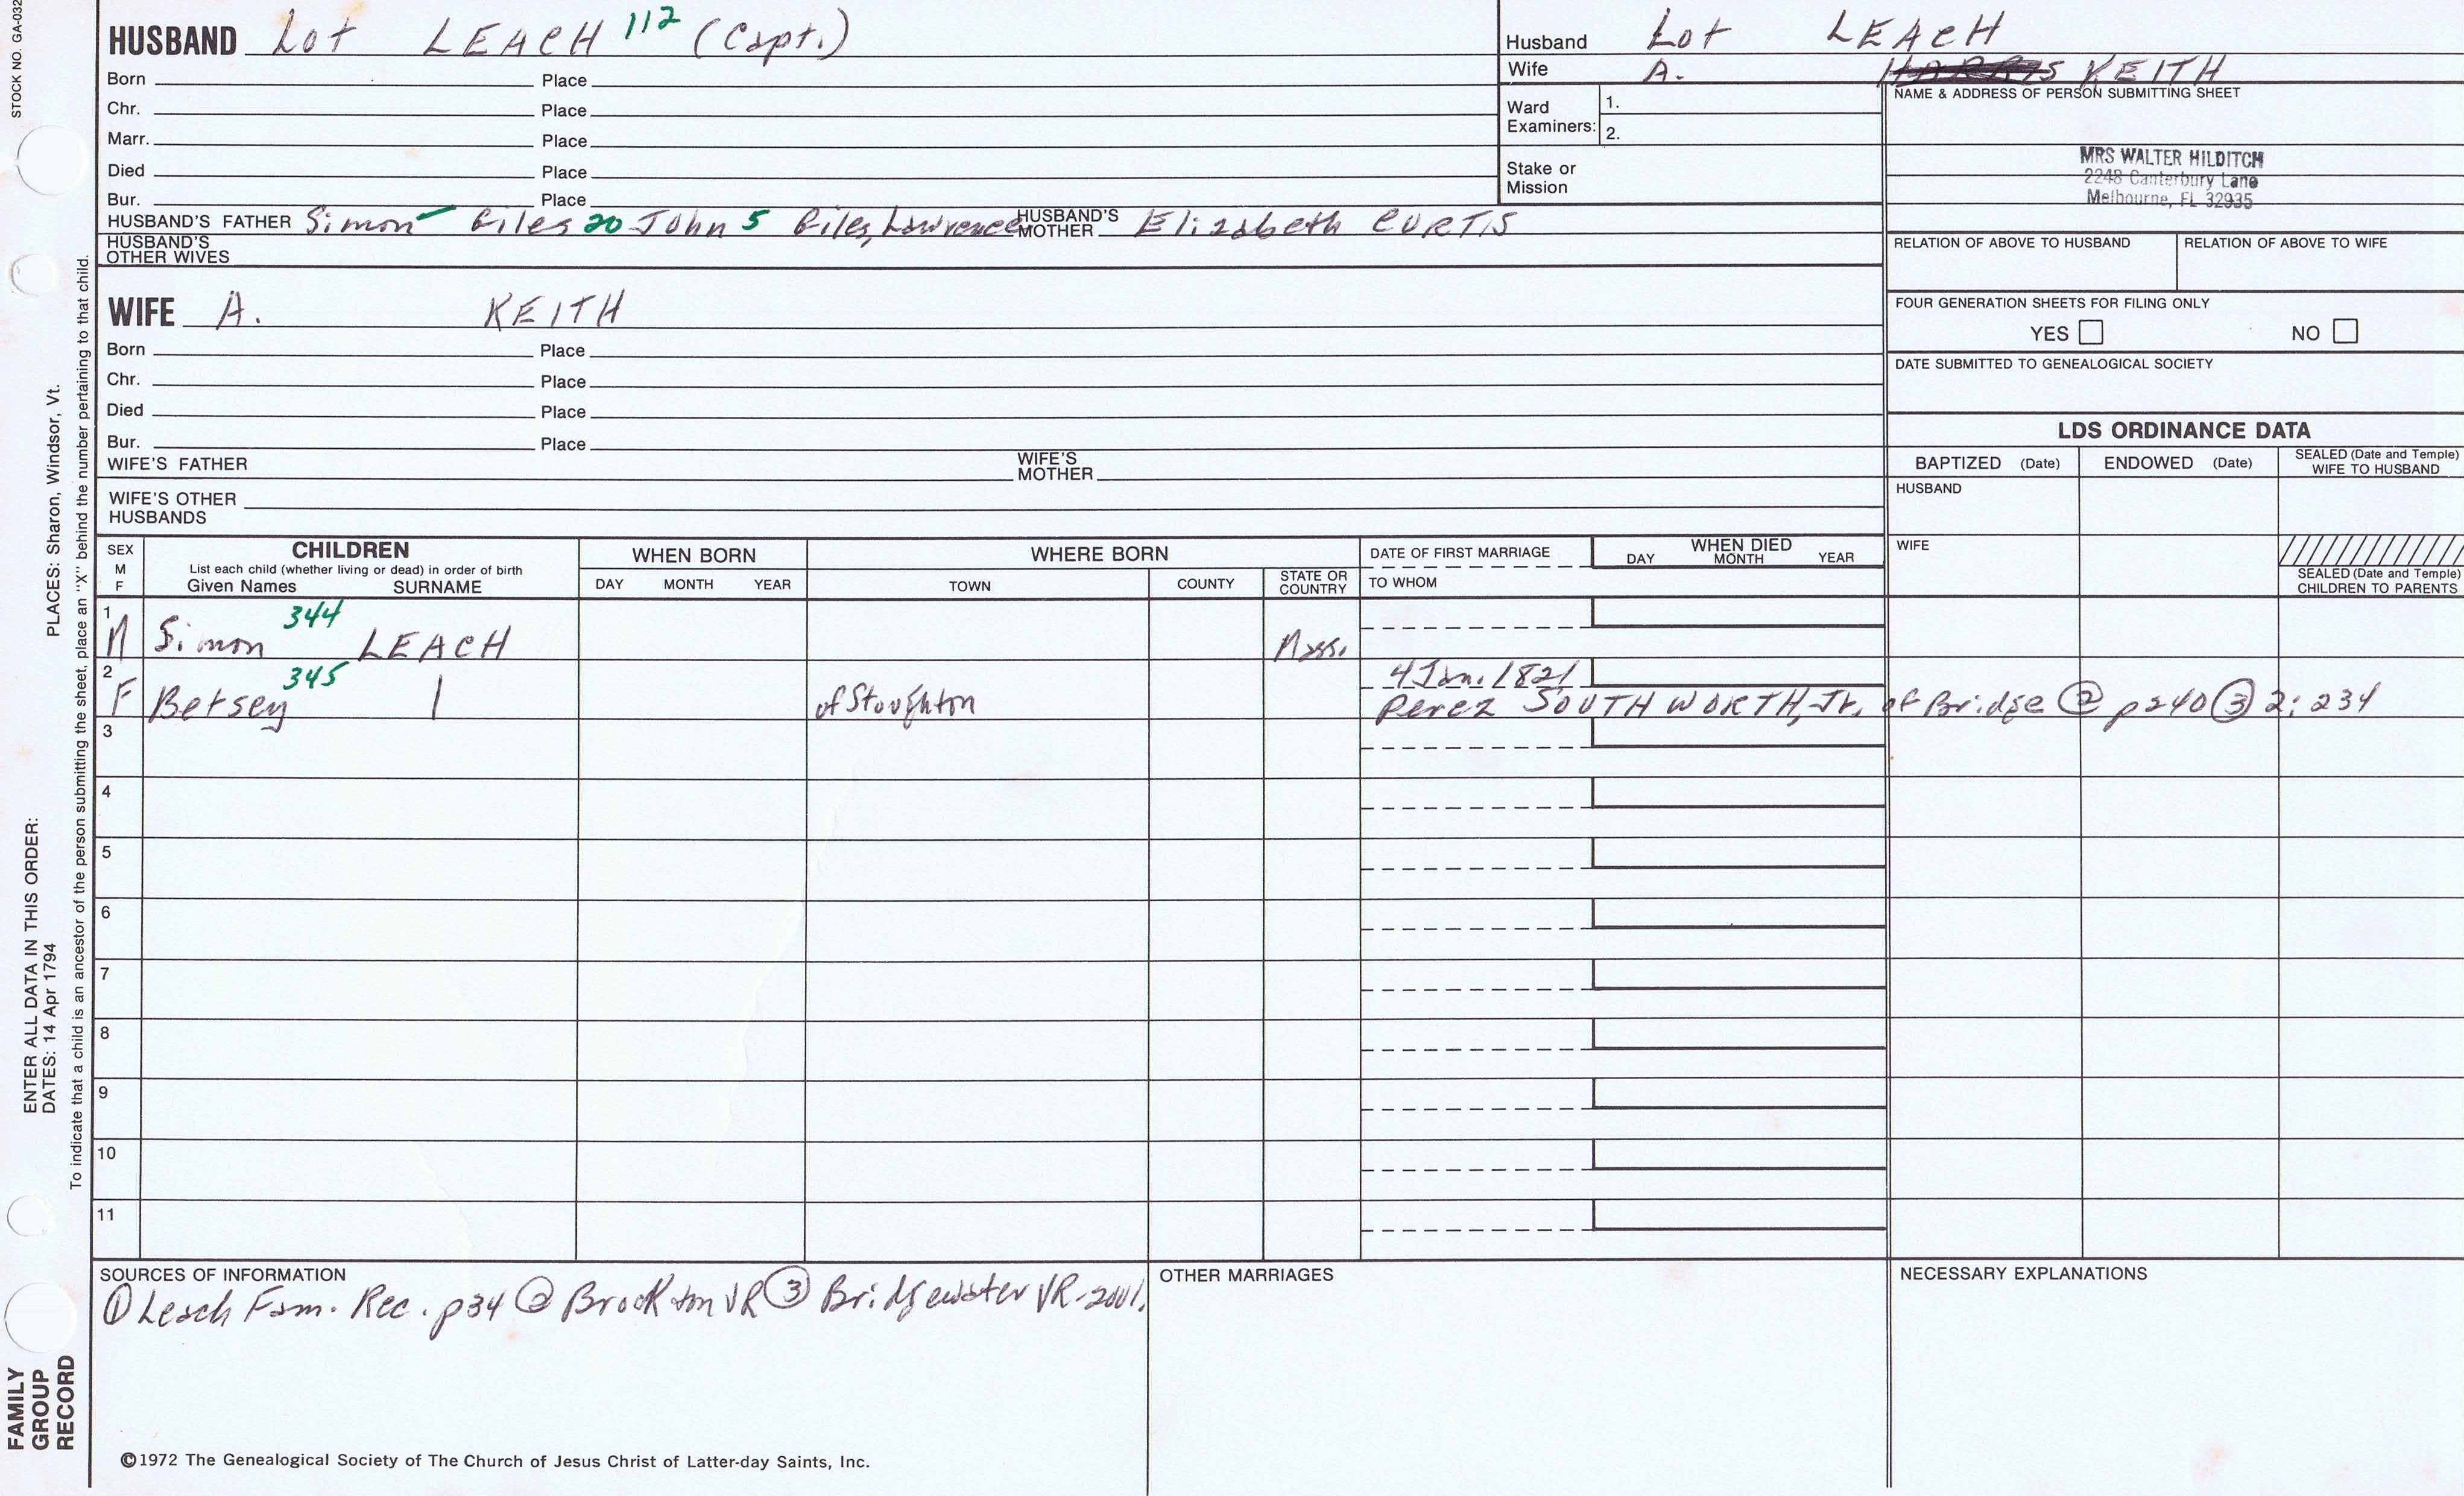 STOCK NO. GA-032
HUSBAND Lot LEACH 112 (Capt.)
Born Place
Chr. Place
Marr. Place
Died Place
Bur. Place
HUSBAND'S FATHER Simon Giles 20 John 5 Giles, Lawrence HUSBAND'S MOTHER Elizabeth CURTIS
HUSBAND'S OTHER WIVES
Husband Lot LEACH
Wife A. HARRIS KEITH
Ward Examiners: 1.
2.
Stake or Mission
NAME & ADDRESS OF PERSON SUBMITTING SHEET
MRS WALTER HILDITCH
2248 Canterbury Lane
Melbourne, FL 32935
RELATION OF ABOVE TO HUSBAND RELATION OF ABOVE TO WIFE
FOUR GENERATION SHEETS FOR FILING ONLY
YES NO
DATE SUBMITTED TO GENEALOGICAL SOCIETY
WIFE A. KEITH
Born Place
Chr. Place
Died Place
Bur. Place
WIFE'S FATHER WIFE'S MOTHER
WIFE'S OTHER HUSBANDS
LDS ORDINANCE DATA
BAPTIZED (Date) ENDOWED (Date) SEALED (Date and Temple) WIFE TO HUSBAND
HUSBAND
WIFE
SEALED (Date and Temple) CHILDREN TO PARENTS
SEX M F
CHILDREN
List each child (whether living or dead) in order of birth
Given Names SURNAME
WHEN BORN
DAY MONTH YEAR
WHERE BORN
TOWN COUNTY STATE OR COUNTRY
DATE OF FIRST MARRIAGE
TO WHOM
WHEN DIED
DAY MONTH YEAR
1 M Simon 344 LEACH Mass.
2 F Betsey 345 | of Stoughton 4 Jan. 1821
Perez SOUTHWORTH, Jr. of Bridge ② p240 ③ 2: 234
3
4
5
6
7
8
9
10
11
SOURCES OF INFORMATION
① Leach Fam. Rec. p34 ② Brockton VR ③ Bridgewater VR-2vol.
OTHER MARRIAGES
NECESSARY EXPLANATIONS
©1972 The Genealogical Society of The Church of Jesus Christ of Latter-day Saints, Inc.
ENTER ALL DATA IN THIS ORDER:
DATES: 14 Apr 1794 PLACES: Sharon, Windsor, Vt.
To indicate that a child is an ancestor of the person submitting the sheet, place an "X" behind the number pertaining to that child.
FAMILY
GROUP
RECORD